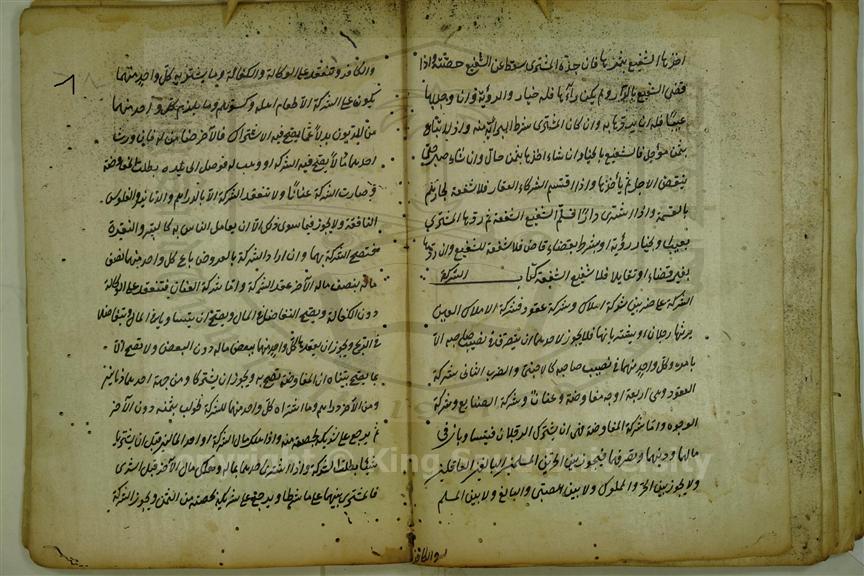 اخذها الشفيع بثمرها فان جذه المشترى سقط عن الشفيع حصته واذا
قضى الشفيع بالدار ولم يكن رآها فله خيار الرؤية وان وجد بها
عيبا فله ان يردها به وان كان المشترى شرط البراءة منه واذا ابتاع
بثمن مؤجل فالشفيع بالخيار ان شاء اخذها بثمن حال وان شاء صبر حتى
ينقضى الاجل ثم يأخذها واذا اقتسم الشركاء العقار فلا شفعة لجارهم
بالقسمة واذا اشترى دارا فسلم الشفيع الشفعة ثم ردها المشترى
بعيب او بخيار رؤية او بشرط بقضاء قاض فلا شفعة للشفيع وان ردها
بغير قضاء او تقايلا فللشفيع الشفعة كتاب الشركة
الشركة على ضربين شركة املاك وشركة عقود فشركة الاملاك العين
يرثها رجلان او يشتريانها فلا يجوز لاحدهما ان يتصرف في نصيب صاحبه الا
بامره وكل واحد منهما في نصيب صاحبه كالاجنبى والضرب الثانى شركة
العقود وهى اربعة اوجه مفاوضة وعنان وشركة الصنايع وشركة
الوجوه واما شركة المفاوضة فهى ان يشترك الرجلان فيتساويان في
مالهما ودينهما وتصرفهما فيجوز بين الحرين المسلمين البالغين العاقلين
ولا يجوز بين الحر والمملوك ولا بين الصبى والبالغ ولا بين المسلم
والكافر
والكافر وتنعقد على الوكالة والكفالة وما يشتريه كل واحد منهما
يكون على الشركة الا طعام اهله وكسوتهم وما يلزم كل واحد منهما
من الديون بدلا عما يصح فيه الاشتراك فالآخر ضامن له فان ورث
احدهما مالا يصح فيه الشركة او وهب له فوصل الى يده بطلت المفاوضة
وصارت الشركة عنانا ولا تنعقد الشركة الا بالدراهم والدنانير والفلوس
النافقة ولا يجوز فيما سوى ذلك الا ان يعامل الناس به كالتبر والنقرة
فتصح الشركة بهما وان اراد الشركة بالعروض باع كل واحد منهما نصف
ماله بنصف مال الآخر ثم عقد الشركة واما شركة العنان فتنعقد على الوكالة
دون الكفالة ويصح التفاضل في المال ويصح ان يتساويا في المال ويتفاضلا
في الربح ويجوز ان يعقدها كل واحد منهما ببعض ماله دون البعض ولا تصح الا
بما بينا ان المفاوضة تصح به ويجوز ان يشتركا ومن جهة احدهما دنانير
ومن الآخر دراهم وما اشتراه كل واحد منهما للشركة طولب بثمنه دون الآخر
ثم يرجع على شريكه بحصته منه واذا هلك مال الشركة او احد المالين قبل ان يشتريا
شيئا بطلت الشركة واذا اشترى احدهما بماله وهلك مال الآخر قبل الشرى
فالمشترى بينهما على ما شرطا ويرجع على شريكه بحصته من الثمن ويجوز الشركة
Copyright © King Saud University